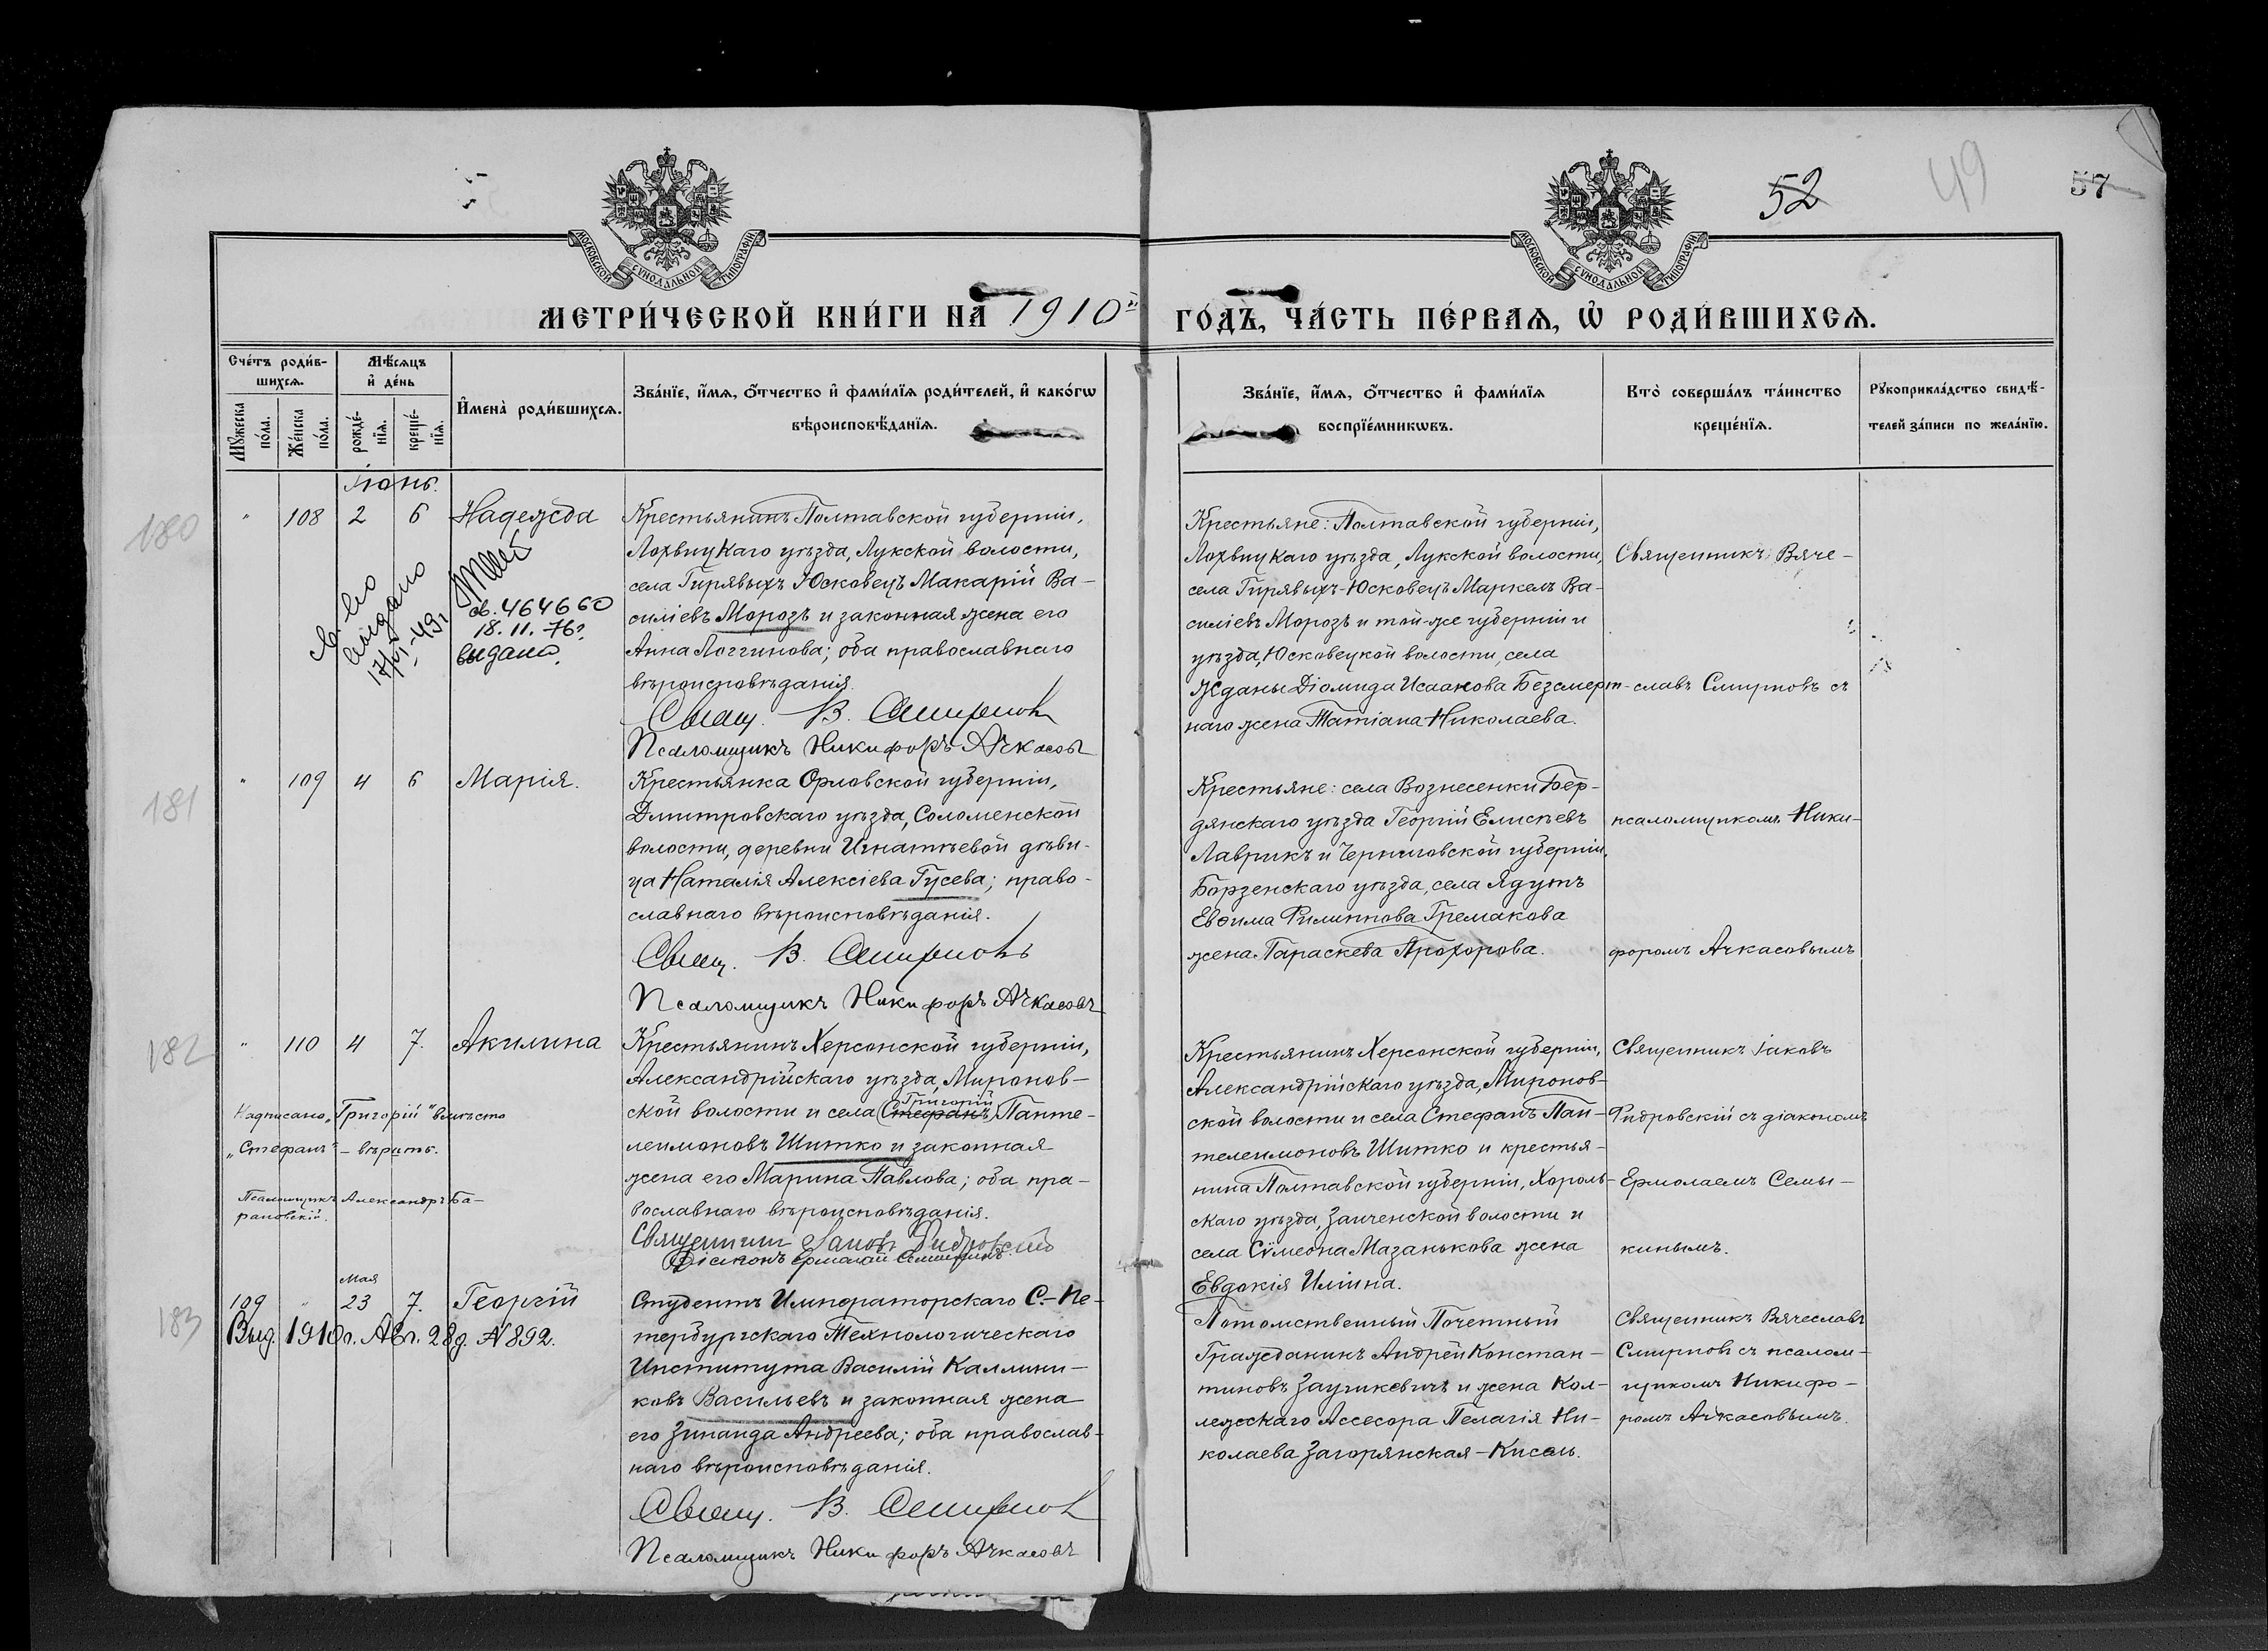 52
49
57
МОСКОВСКОЙ СУНОДАЛЬНОЙ ТИПОГРАФІИ
МОСКОВСКОЙ СУНОДАЛЬНОЙ ТИПОГРАФІИ
МЕТРИ́ЧЕСКОЙ КНИ́ГИ НА 1910й ГО́ДЪ, ЧА́СТЬ ПЕ́РВАѦ, Ѡ РОДИ́ВШИХСѦ.
Сче́тъ роди́в-
шихсѧ.
Мꙋжеска
по́ла.
Же́нска
по́ла.
Мѣ́сѧцъ
и҆ де́нь
рожде́-
нїѧ.
креще́-
нїѧ.
И҆мена̀ роди́вшихсѧ.
Зва́нїе, и҆́мѧ, ѻ҆́тчество и҆ фами́лїѧ роди́телей, и҆ како́гѡ
вѣроисповѣ́данїѧ.
Зва́нїе, и҆́мѧ, ѻ҆́тчество и҆ фами́лїѧ
воспрїе́мникѡвъ.
Кто̀ соверша́лъ та́инство
креще́нїѧ.
Рꙋкоприкла́дство свидѣ́-
телей за́писи по жела́нїю.
Іюнь.
180
" 108 2 6 Надежда
Крестьянинъ Полтавской губерніи,
Лохвицкаго уѣзда, Лукской волости,
села Гирявыхъ Юсковецъ Макарій Ва-
силіевъ Морозъ и законная жена его
Анна Логгинова; оба православнаго
вѣроисповѣданія.
Свящ. В. Смирновъ
Псаломщикъ Никифоръ Ачкасовъ
выдано
17/VI-49г.
св. 464660
18.11.76г.
выдано.
Крестьяне: Полтавской губерніи,
Лохвицкаго уѣзда, Лукской волости,
села Гирявыхъ-Юсковецъ Маркелъ Ва-
силіевъ Морозъ и той-же губерніи и
уѣзда, Юсковецкой волости, села
Жданы Діомида Исаакова Безсмерт-
наго жена Татіана Николаева.
Священникъ Вяче-
славъ Смирновъ съ
181
" 109 4 6 Марія.
Крестьянка Орловской губерніи,
Дмитровскаго уѣзда, Соломенской
волости, деревни Игнатьевой дѣви-
ца Наталія Алексіева Гусева; право-
славнаго вѣроисповѣданія.
Свящ. В. Смирновъ
Псаломщикъ Никифоръ Ачкасовъ
Крестьяне: села Вознесенки Бер-
дянскаго уѣзда Георгій Елисѣевъ
Лаврикъ и Черниговской губерніи,
Борзенскаго уѣзда, села Ядутъ
Евѳима Филиппова Гремакова
жена Параскева Прохорова.
псаломщикомъ Ники-
форомъ Ачкасовымъ
182
" 110 4 7. Акилина
Надписано „Григорій" вмѣсто
„Стефанъ" – вѣрить.
Псаломщикъ Александръ Ба-
рановскій.
Крестьянинъ Херсонской губерніи,
Александрійскаго уѣзда, Миронов-
Григорій
ской волости и села (Стефанъ) Панте-
леимоновъ Шитко и законная
жена его Марина Павлова; оба пра-
вославнаго вѣроисповѣданія.
Священникъ Іаковъ Фидровскій
Діаконъ Ермолай Семыкинъ.
Крестьянинъ Херсонской губерніи,
Александрійскаго уѣзда, Миронов-
ской волости и села Стефанъ Пан-
телеимоновъ Шитко и крестья-
нина Полтавской губерніи, Хороль-
скаго уѣзда, Заиченской волости и
села Сѵмеона Мазанькова жена
Евдокія Иліина.
Священникъ Іаковъ
Фидровскій съ діакономъ
Ермолаемъ Семы-
кинымъ.
183
Мая
109 " 23 7. Георгій
Выд. 1910г. Авг. 28д. N892.
Студентъ Императорскаго С.-Пе-
тербургскаго Технологическаго
Института Василій Каллини-
ковъ Васильевъ и законная жена
его Зинаида Андреева; оба православ-
наго вѣроисповѣданія.
Свящ. В. Смирновъ
Псаломщикъ Никифоръ Ачкасовъ
Потомственный Почетный
Гражданинъ Андрей Констан-
тиновъ Заушкевичъ и жена Кол-
лежскаго Ассесора Пелагія Ни-
колаева Загорянская-Кисель.
Священникъ Вячеславъ
Смирновъ съ псалом-
щикомъ Никифо-
ромъ Ачкасовымъ.